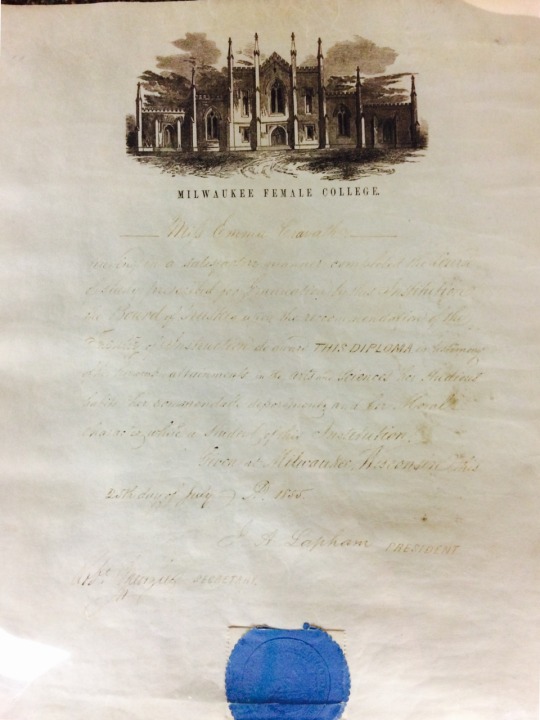 MILWAUKEE FEMALE COLLEGE.
Miss Emma
having in a satisfactory manner completed the Course
of Study prescribed for graduation by this Institution
the Board of Trustees upon the recommendation of the
Faculty of Instruction do award THIS DIPLOMA in testimony
of her attainments in the Arts and Sciences her studious
habits her commendable deportment and her Moral
character while a Student of this Institution.
Given at Milwaukee, Wisconsin this
25th day of July 1855.
I A Lapham PRESIDENT
SECRETARY